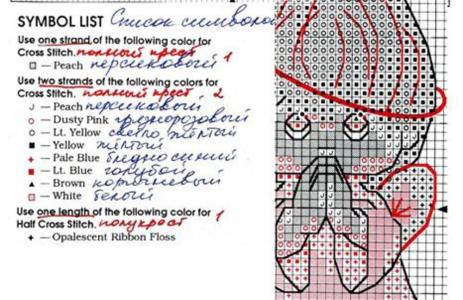 SYMBOL LIST Список символов
Use one strand of the following color for
Cross Stitch. полный крест 1
– Peach персиковый
Use two strands of the following colors for
Cross Stitch. полный крест 2
– Peach персиковый
– Dusty Pink грязнорозовый
– Lt. Yellow светло жёлтый
– Yellow жёлтый
– Pale Blue бледно синий
– Lt. Blue голубой
– Brown коричневый
– White белый
Use one length of the following color for 1
Half Cross Stitch. полукрест
– Opalescent Ribbon Floss